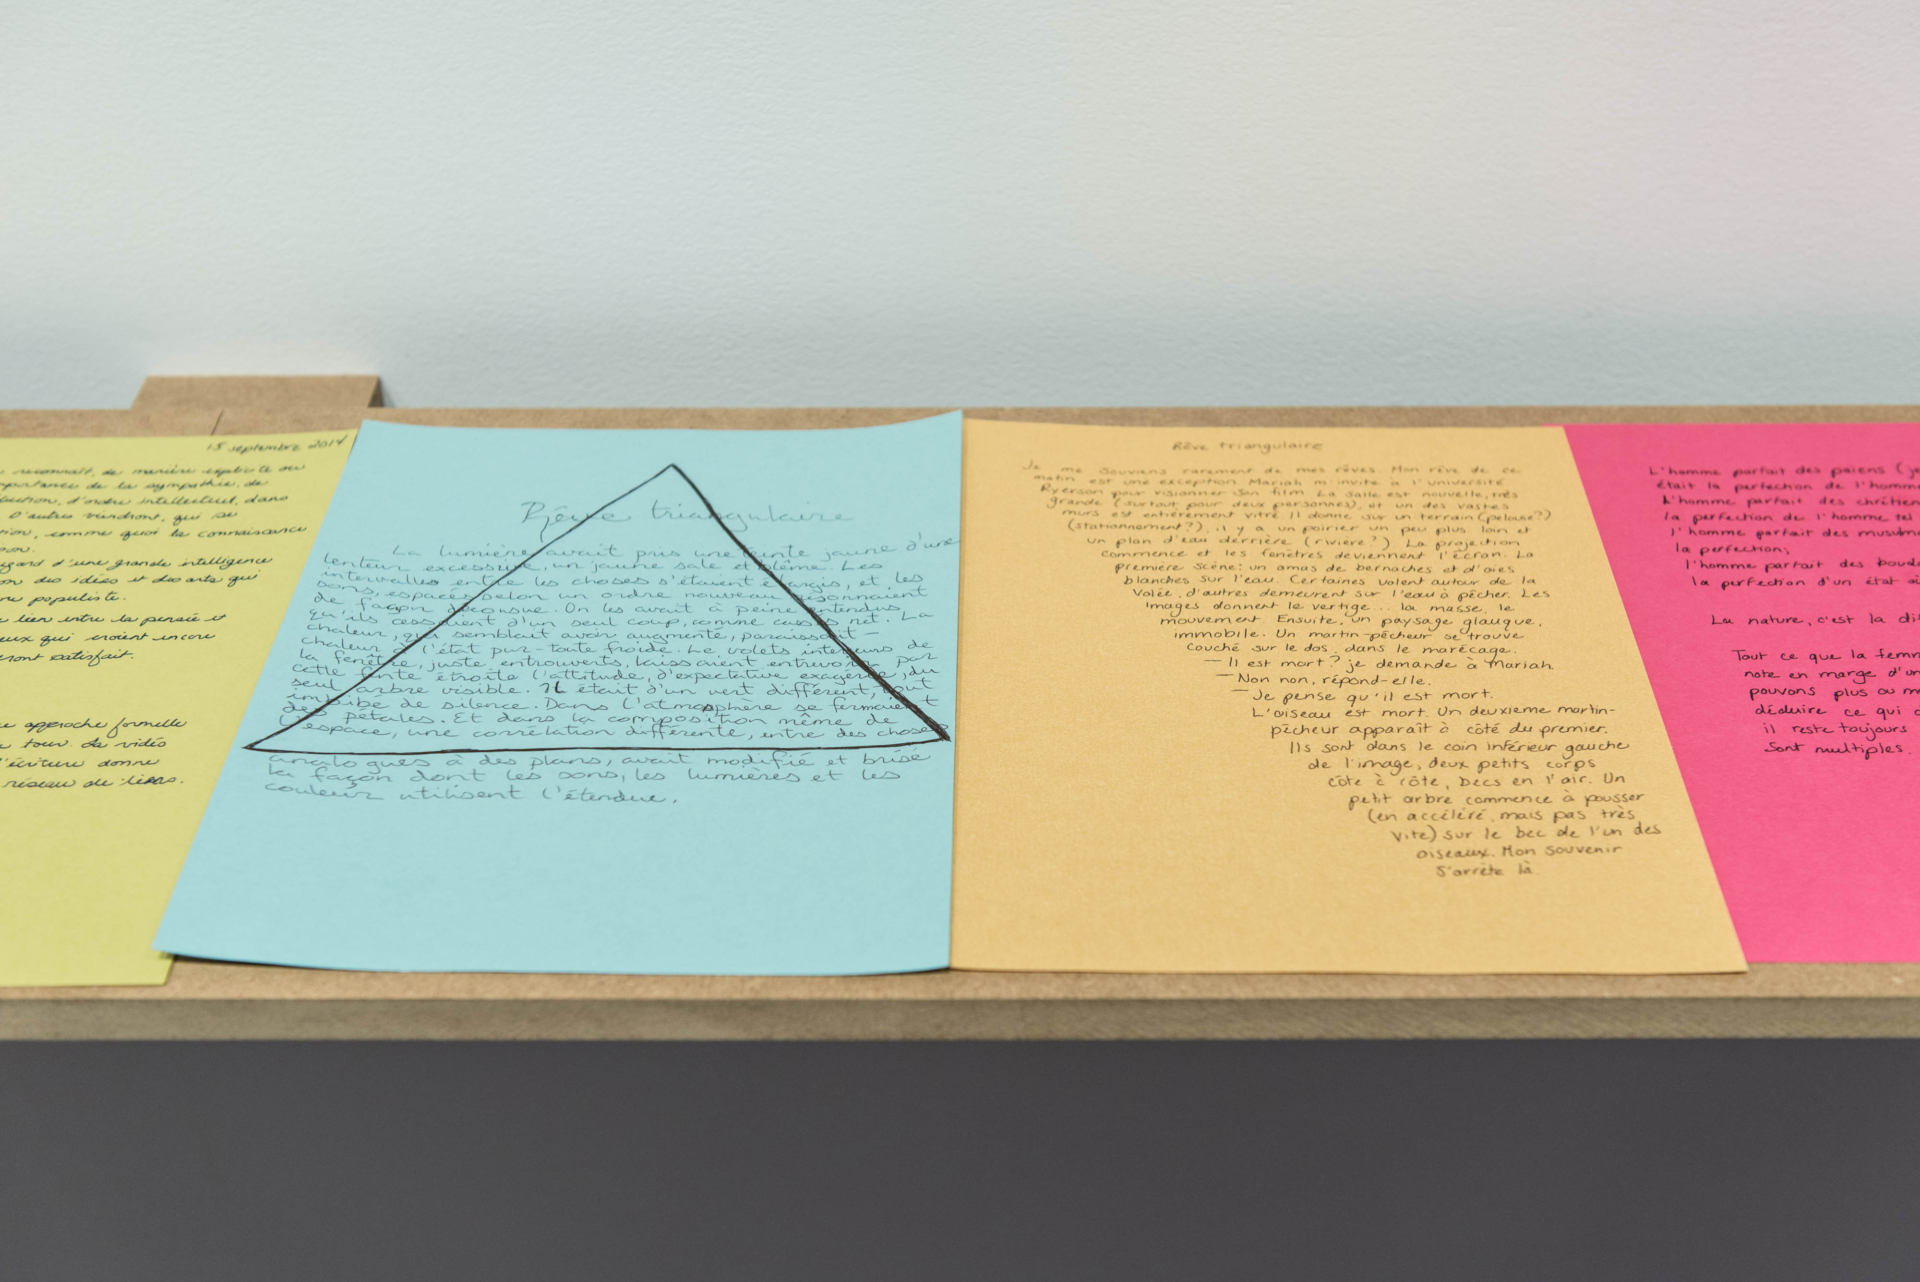 15 septembre 2014
reconnaît, de manière explicite ou
importance de la sympathie, de
d'ordre intellectuel, dans
D'autres viendront, qui se
comme quoi la connaissance
d'une grande intelligence
des idées et des arts qui
populiste.
lien entre la pensée et
ceux qui croient encore
seront satisfait.
approche formelle
tour de vidéo
l'écriture donne
réseau de liens.
Rêve triangulaire
La lumière avait pris une teinte jaune d'une
lenteur excessive, un jaune sale et blême. Les
intervalles entre les choses s'étaient élargis, et les
sons, espacés selon un ordre nouveau résonnaient
de façon décousue. On les avait à peine entendus
qu'ils cessaient d'un seul coup, comme cassés net. La
chaleur, qui semblait avoir augmenté, paraissait –
chaleur à l'état pur – toute froide. Le volets intérieurs de
la fenêtre, juste entrouverts, laissaient entrevoir, par
cette fente étroite l'attitude, d'expectative exagérée, du
seul arbre visible. IL était d'un vert différent, tout
imbibé de silence. Dans l'atmosphère se fermaient
des pétales. Et dans la composition même de
l'espace, une corrélation différente, entre des choses
analogues à des plans, avait modifié et brisé
la façon dont les sons, les lumières et les
couleur utilisent l'étendue.
Rêve triangulaire
Je me souviens rarement de mes rêves. Mon rêve de ce
matin est une exception Mariah m'invite à l'université
Ryerson pour visionner son film La salle est nouvelle, très
grande (surtout pour deux personnes), et un des vastes
murs est entièrement vitré Il donne sur un terrain (pelouse?)
(stationnement?), il y a un poirier un peu plus loin et
un plan d'eau derrière (rivière?) La projection
commence et les fenêtres deviennent l'écran. La
première scène: un amas de bernaches et d'oies
blanches sur l'eau. Certaines volent autour de la
volée, d'autres demeurent sur l'eau à pêcher. Les
images donnent le vertige... la masse, le
mouvement. Ensuite, un paysage glauque,
immobile. Un martin-pêcheur se trouve
couché sur le dos, dans le marécage.
— Il est mort? je demande à Mariah.
— Non non, répond-elle.
— Je pense qu'il est mort.
L'oiseau est mort. Un deuxième martin-
pêcheur apparaît à côté du premier.
Ils sont dans le coin inférieur gauche
de l'image, deux petits corps
côte à côte, becs en l'air. Un
petit arbre commence à pousser
(en accéléré, mais pas très
vite) sur le bec de l'un des
oiseaux. Mon souvenir
s'arrête là.
L'homme parfait des païens
était la perfection de l'homme
L'homme parfait des chrétiens
la perfection de l'homme tel
l'homme parfait des
la perfection;
l'homme parfait des
la perfection d'un état
La nature, c'est la
Tout ce que la
note en marge d'un
pouvons plus ou
déduire ce qui
il reste toujours
sont multiples.